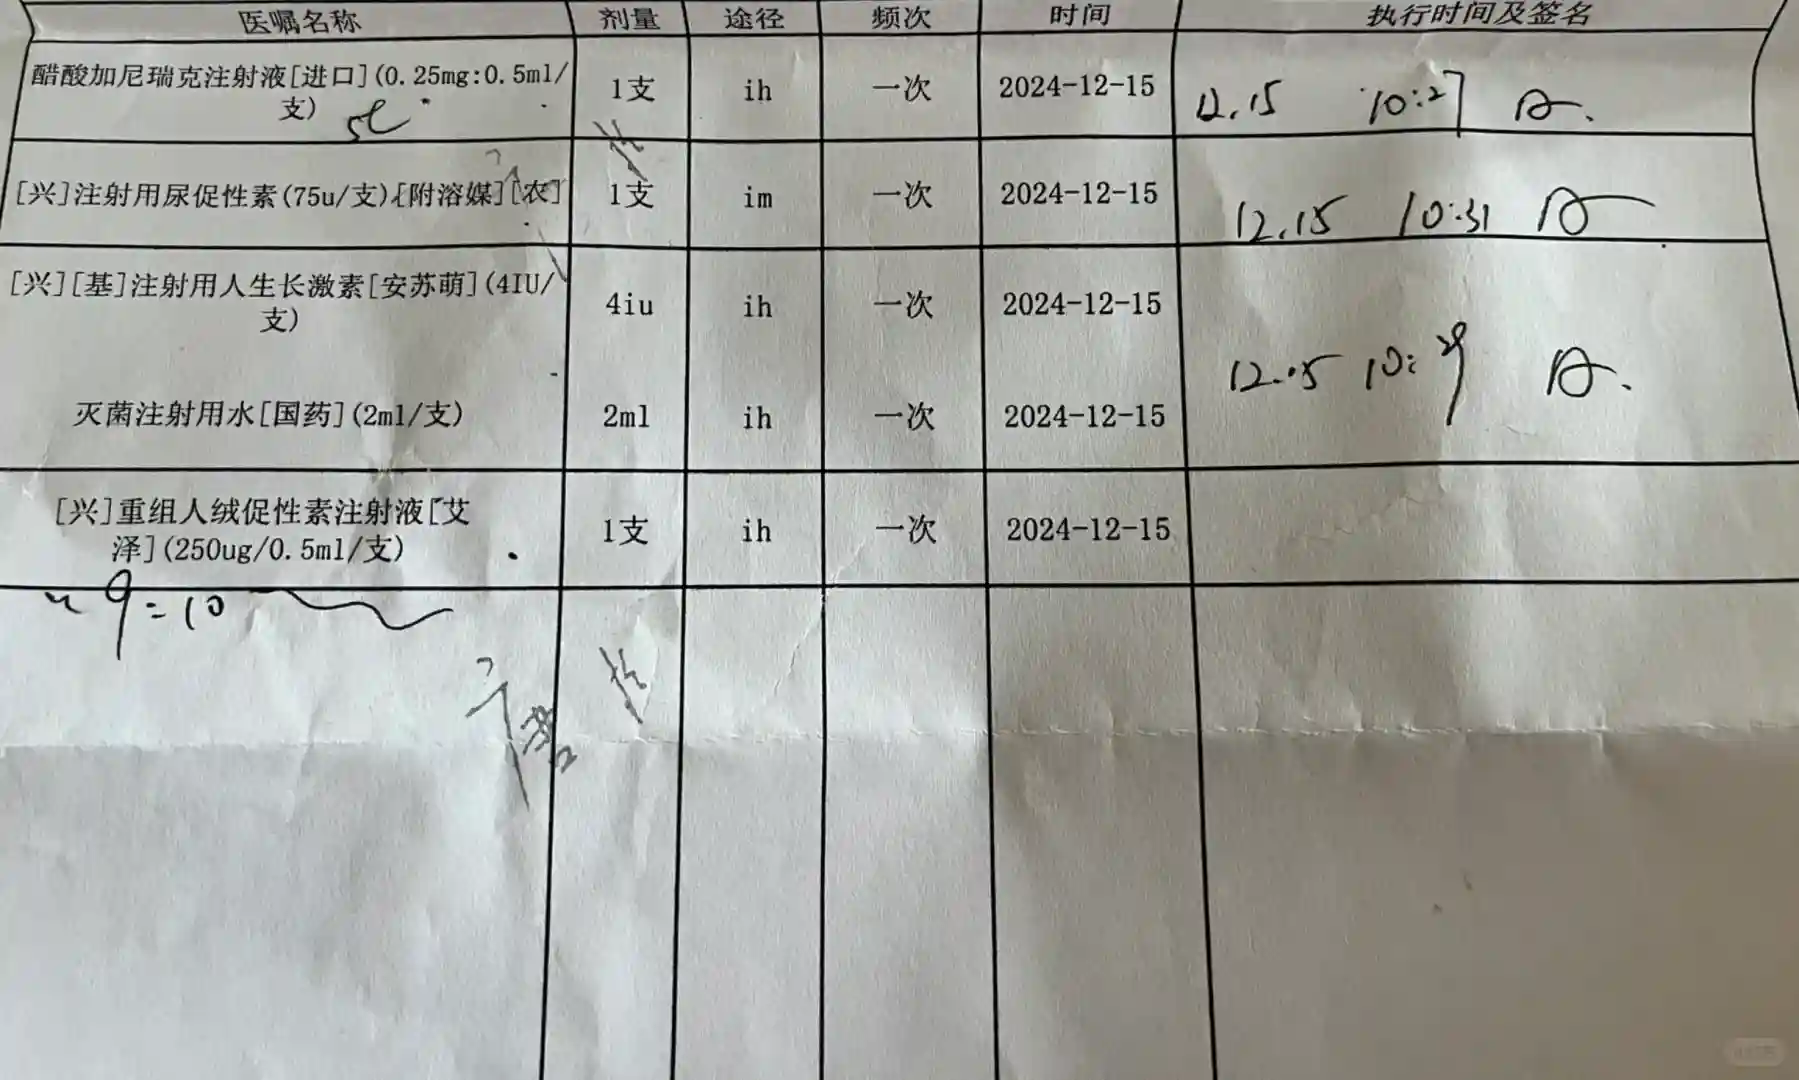 医嘱名称 剂量 途径 频次 时间 执行时间及签名
醋酸加尼瑞克注射液[进口](0.25mg:0.5ml/
支) 1支 ih 一次 2024-12-15 12.15 10:27
[兴]注射用尿促性素(75u/支)[附溶媒][农] 1支 im 一次 2024-12-15 12.15 10:31
[兴][基]注射用人生长激素[安苏萌](4IU/
支) 4iu ih 一次 2024-12-15
12.15 10:29
灭菌注射用水[国药](2ml/支) 2ml ih 一次 2024-12-15
[兴]重组人绒促性素注射液[艾
泽](250ug/0.5ml/支) 1支 ih 一次 2024-12-15
9:10